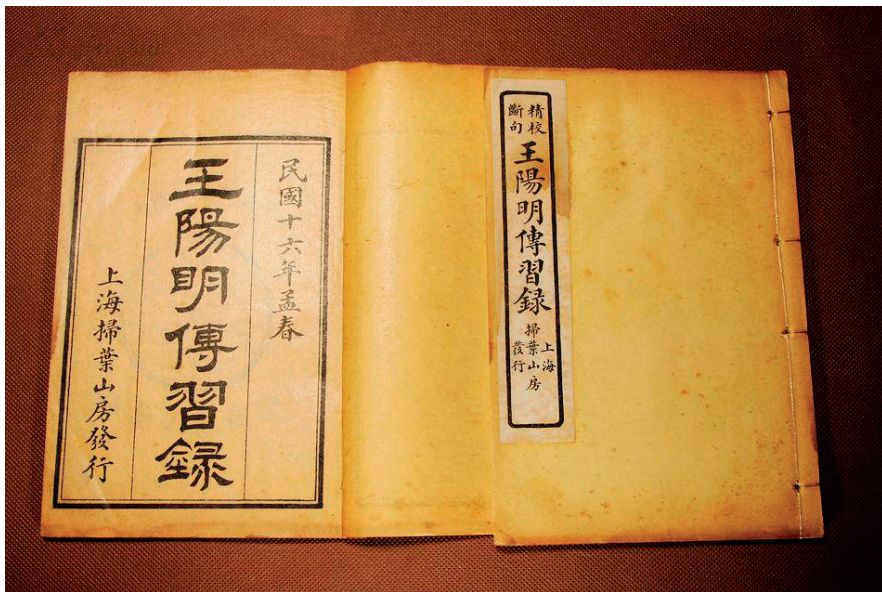 民國十六年孟春
王陽明傳習録
上海掃葉山房發行
精校
斷句
王陽明傳習録
上海
掃葉山房
發行